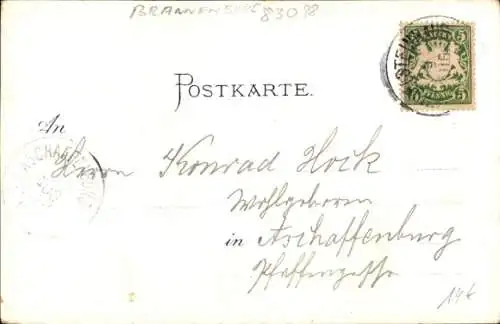 BRANNENBURG 83098
POSTKARTE.
An
Herrn Konrad Hock
Wohlgeborn
in Aschaffenburg
Pfaffengasse
14€